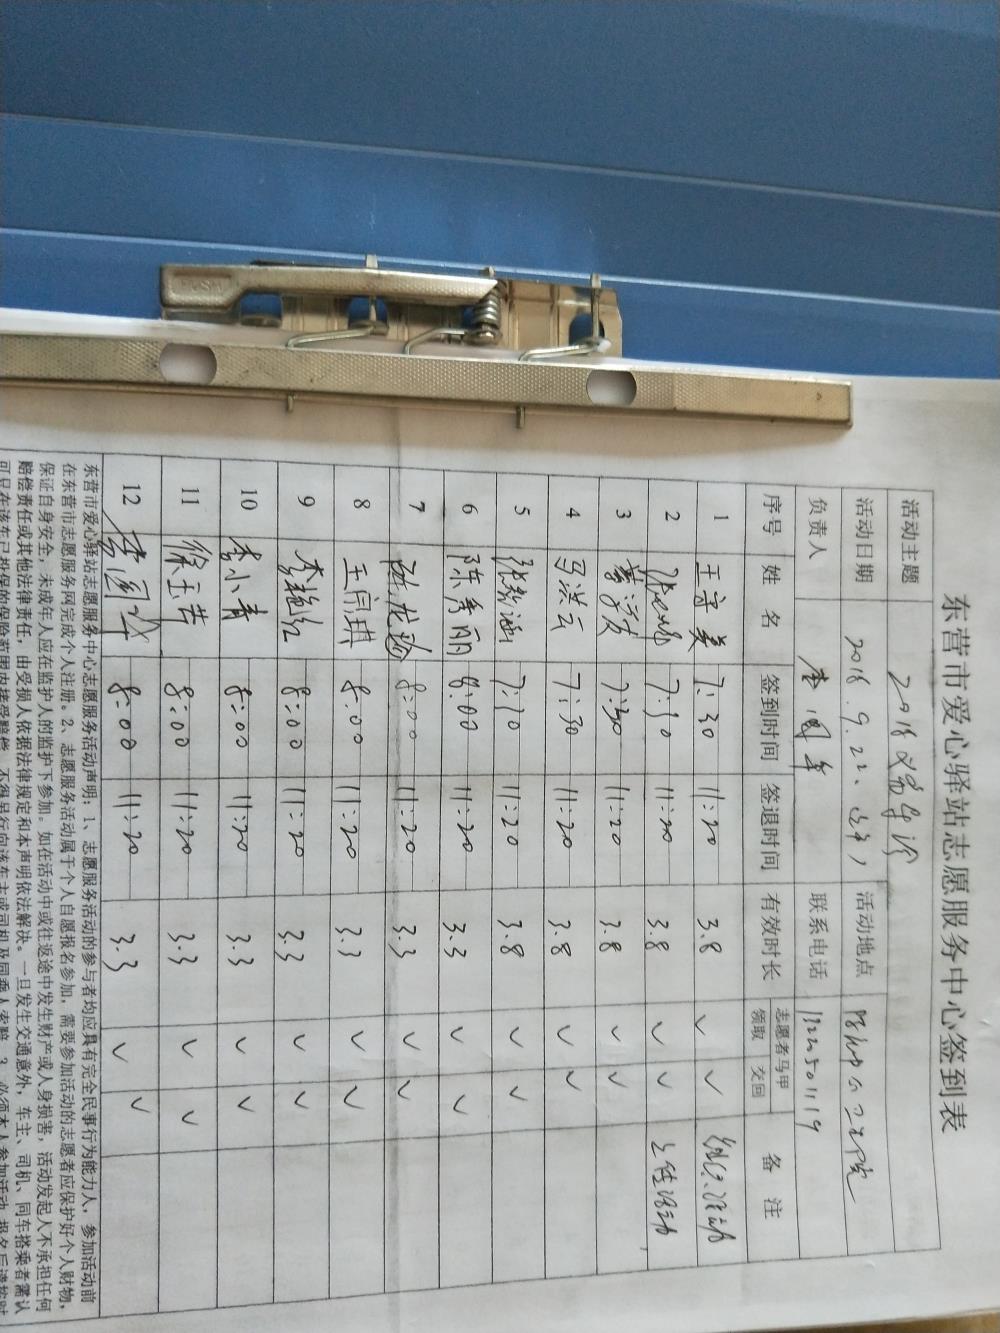 东营市爱心驿站志愿服务中心签到表
活动主题 2018义务导诊
活动日期 2018.9.22. 活动地点
负责人 李国华 联系电话
序号 姓名 签到时间 签退时间 有效时长 志愿者马甲 领取 交回 备注
1 王守美 7:30 11:20 3.8 ✓ ✓
2 7:30 11:20 3.8 ✓ ✓
3 7:30 11:20 3.8 ✓ ✓
4 马洪云 7:30 11:20 3.8 ✓ ✓
5 7:30 11:20 3.8 ✓ ✓
6 陈秀丽 8:00 11:20 3.3 ✓ ✓
7 8:00 11:20 3.3 ✓ ✓
8 8:00 11:20 3.3 ✓ ✓
9 李艳红 8:00 11:20 3.3 ✓ ✓
10 李小青 8:00 11:20 3.3 ✓ ✓
11 徐玉芳 8:00 11:20 3.3 ✓ ✓
12 李国华 8:00 11:20 3.3 ✓ ✓
东营市爱心驿站志愿服务中心志愿服务活动声明：1、志愿服务活动的参与者均应具有完全民事行为能力人，参加活动前
在东营市志愿服务网完成个人注册。2、志愿服务活动属于个人自愿报名参加，需要参加活动的志愿者应保护好个人财物，
保证自身安全，未成年人应在监护人的监护下参加。如在活动中或往返途中发生财产或人身损害，活动发起人不承担任何
赔偿责任或其他法律责任，由受损人依据法律规定和本声明依法解决。一旦发生交通意外，车主、司机、同车搭乘者需认
可只在该车已投保的保险范围内接受赔偿，不得另行向该车主或司机及同乘人索赔。3、必须本人参加活动，报名后请按时